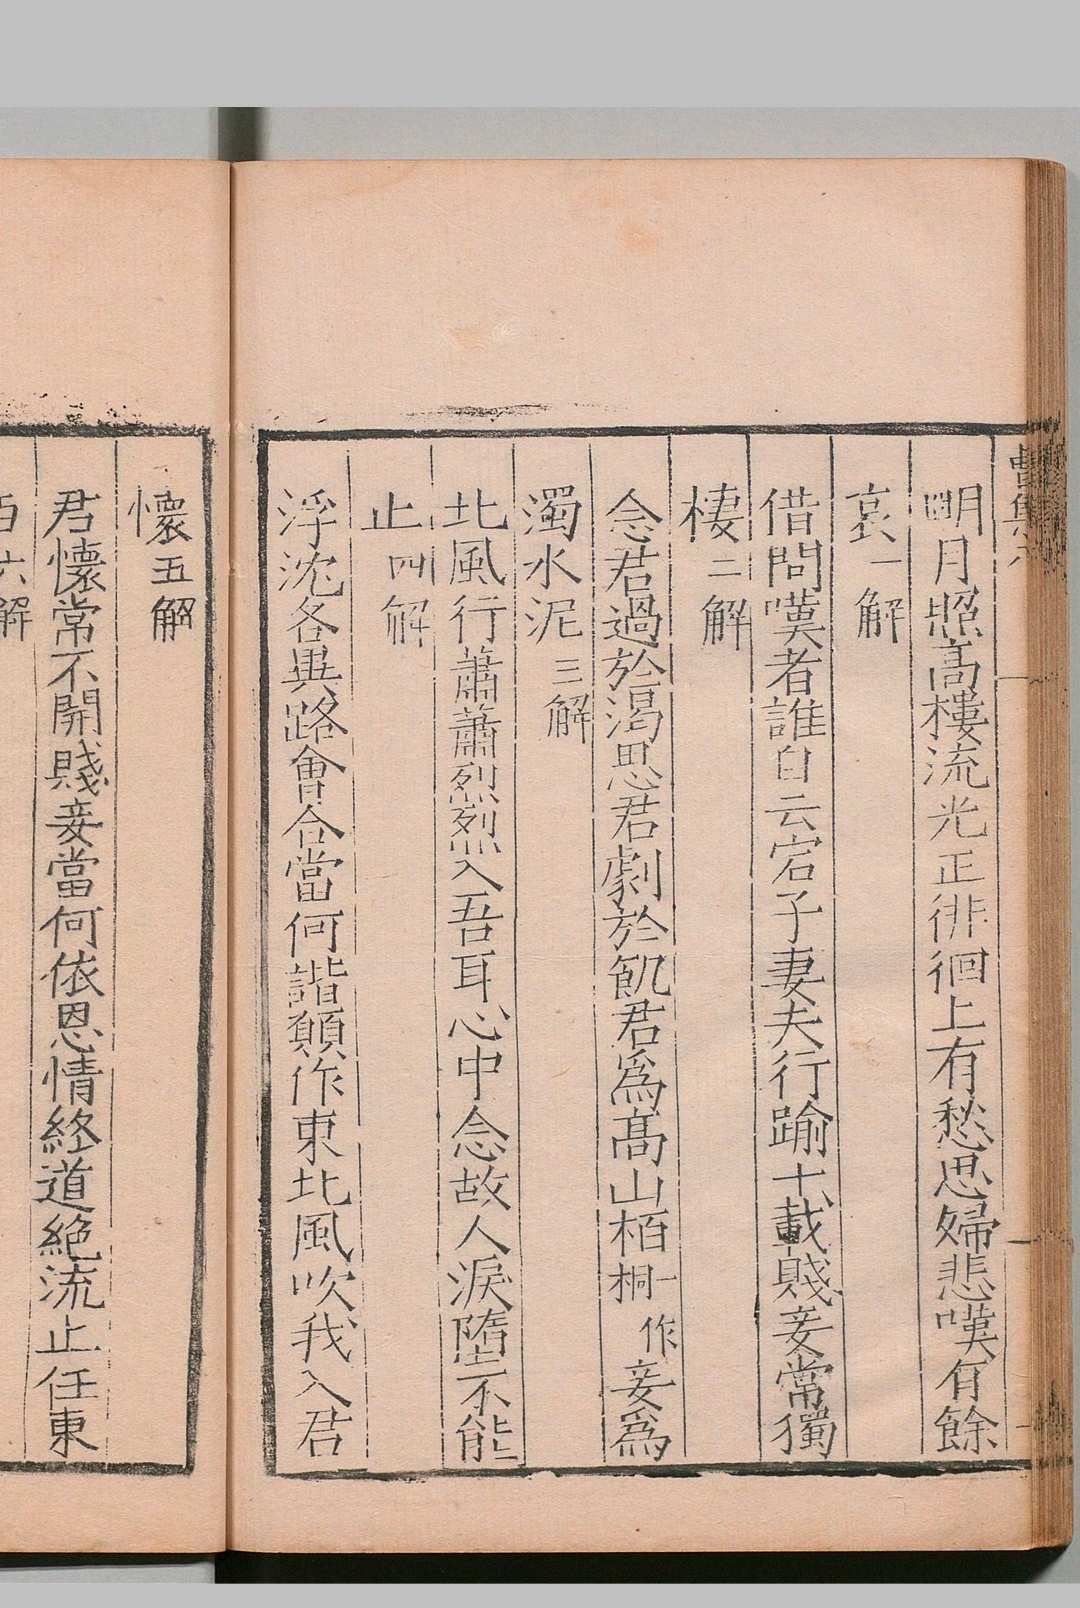 明月照高樓流光正徘徊上有愁思婦悲嘆有餘
哀一解
借問嘆者誰自云宕子妻夫行踰十載賤妾常獨
棲二解
念君過於渴思君劇於飢君爲高山栢一作桐妾爲
濁水泥三解
北風行蕭蕭烈烈入吾耳心中念故人淚墮不能
止四解
浮沈各異路會合當何諧願作東北風吹我入君
懷五解
君懷常不開賤妾當何依恩情終道絕流止任東
西六解